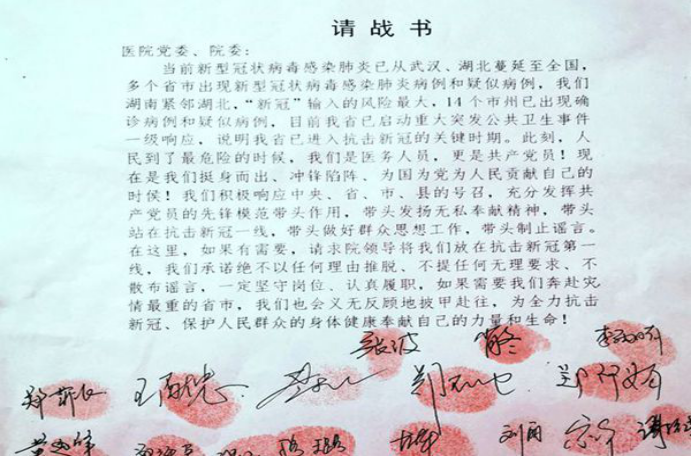 请战书
医院党委、院委：
当前新型冠状病毒感染肺炎已从武汉、湖北蔓延至全国，
多个省市出现新型冠状病毒感染肺炎病例和疑似病例，我们
湖南紧邻湖北，“新冠”输入的风险最大，14个市州已出现确
诊病例和疑似病例，目前我省已启动重大突发公共卫生事件
一级响应，说明我省已进入抗击新冠的关键时期。此刻，人
民到了最危险的时候，我们是医务人员，更是共产党员！现
在是我们挺身而出、冲锋陷阵、为国为党为人民贡献自己的
时候！我们积极响应中央、省、市、县的号召，充分发挥共
产党员的先锋模范带头作用，带头发扬无私奉献精神，带头
站在抗击新冠一线，带头做好群众思想工作，带头制止谣言。
在这里，如果有需要，请求院领导将我们放在抗击新冠第一
线，我们承诺绝不以任何理由推脱、不提任何无理要求、不
散布谣言，一定坚守岗位、认真履职，如果需要我们奔赴灾
情最重的省市，我们也会义无反顾地披甲赴往，为全力抗击
新冠、保护人民群众的身体健康奉献自己的力量和生命！
张波
刘丹